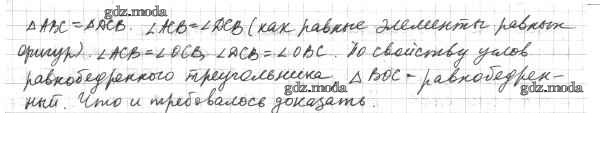 △ABC = △DCB. ∠ACB = ∠DCB (как равные элементы равных
фигур). ∠ACB = ∠OCB, ∠DCB = ∠OBC. По свойству углов
равнобедренного треугольника △BOC - равнобедрен-
ный. Что и требовалось доказать.
gdz.moda
gdz.moda
gdz.moda
gdz.moda
gdz.moda